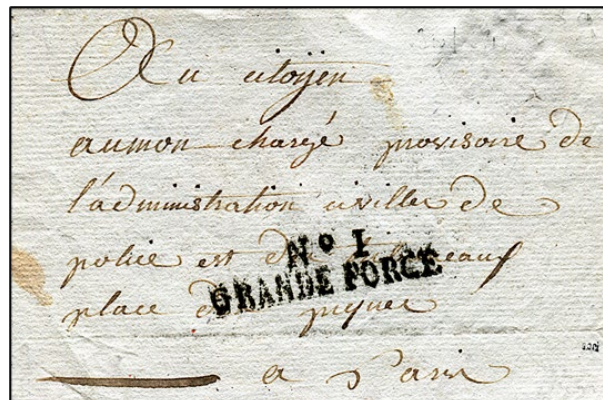 Au citoyen
aumon chargé provisoire de
l'administration civilles de
police est des tribunaux
place des piques
N° I
GRANDE FORCE
a Paris